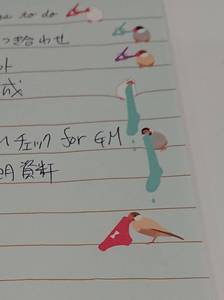 to do
き合わせ
ト
成
チェック for GM
資料